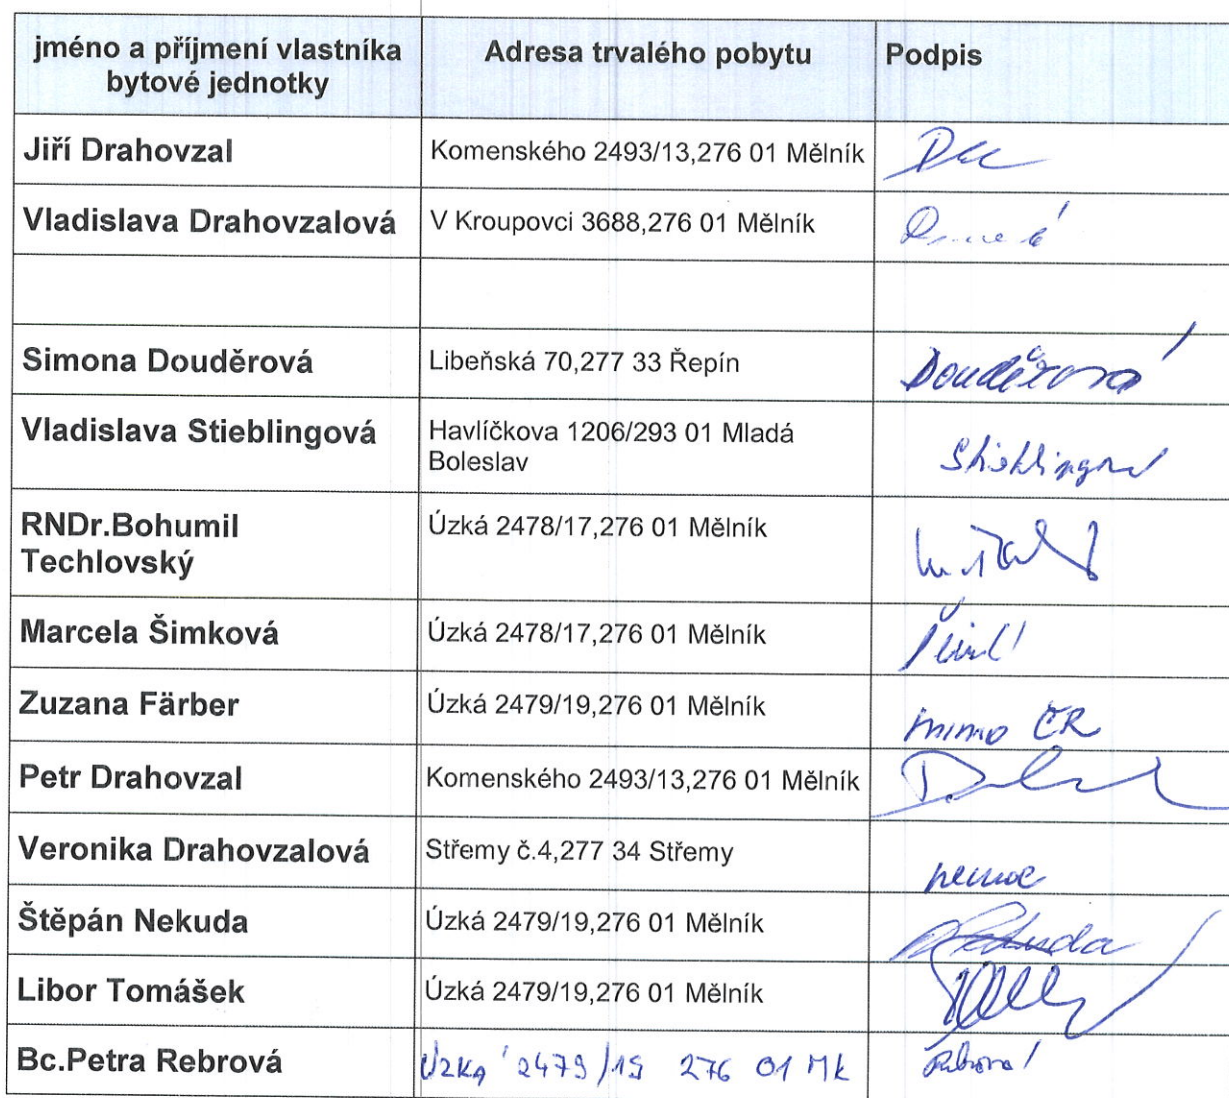 jméno a příjmení vlastníka
bytové jednotky
Adresa trvalého pobytu
Podpis
Jiří Drahovzal
Komenského 2493/13,276 01 Mělník
Vladislava Drahovzalová
V Kroupovci 3688,276 01 Mělník
Simona Douděrová
Libeňská 70,277 33 Řepín
Douděrová
Vladislava Stieblingová
Havlíčkova 1206/293 01 Mladá
Boleslav
RNDr.Bohumil
Techlovský
Úzká 2478/17,276 01 Mělník
Marcela Šimková
Úzká 2478/17,276 01 Mělník
Zuzana Färber
Úzká 2479/19,276 01 Mělník
mimo ČR
Petr Drahovzal
Komenského 2493/13,276 01 Mělník
Veronika Drahovzalová
Střemy č.4,277 34 Střemy
nemoc
Štěpán Nekuda
Úzká 2479/19,276 01 Mělník
Nekuda
Libor Tomášek
Úzká 2479/19,276 01 Mělník
Bc.Petra Rebrová
ÚZKÁ 2479/19 276 01 MK
Rebrová